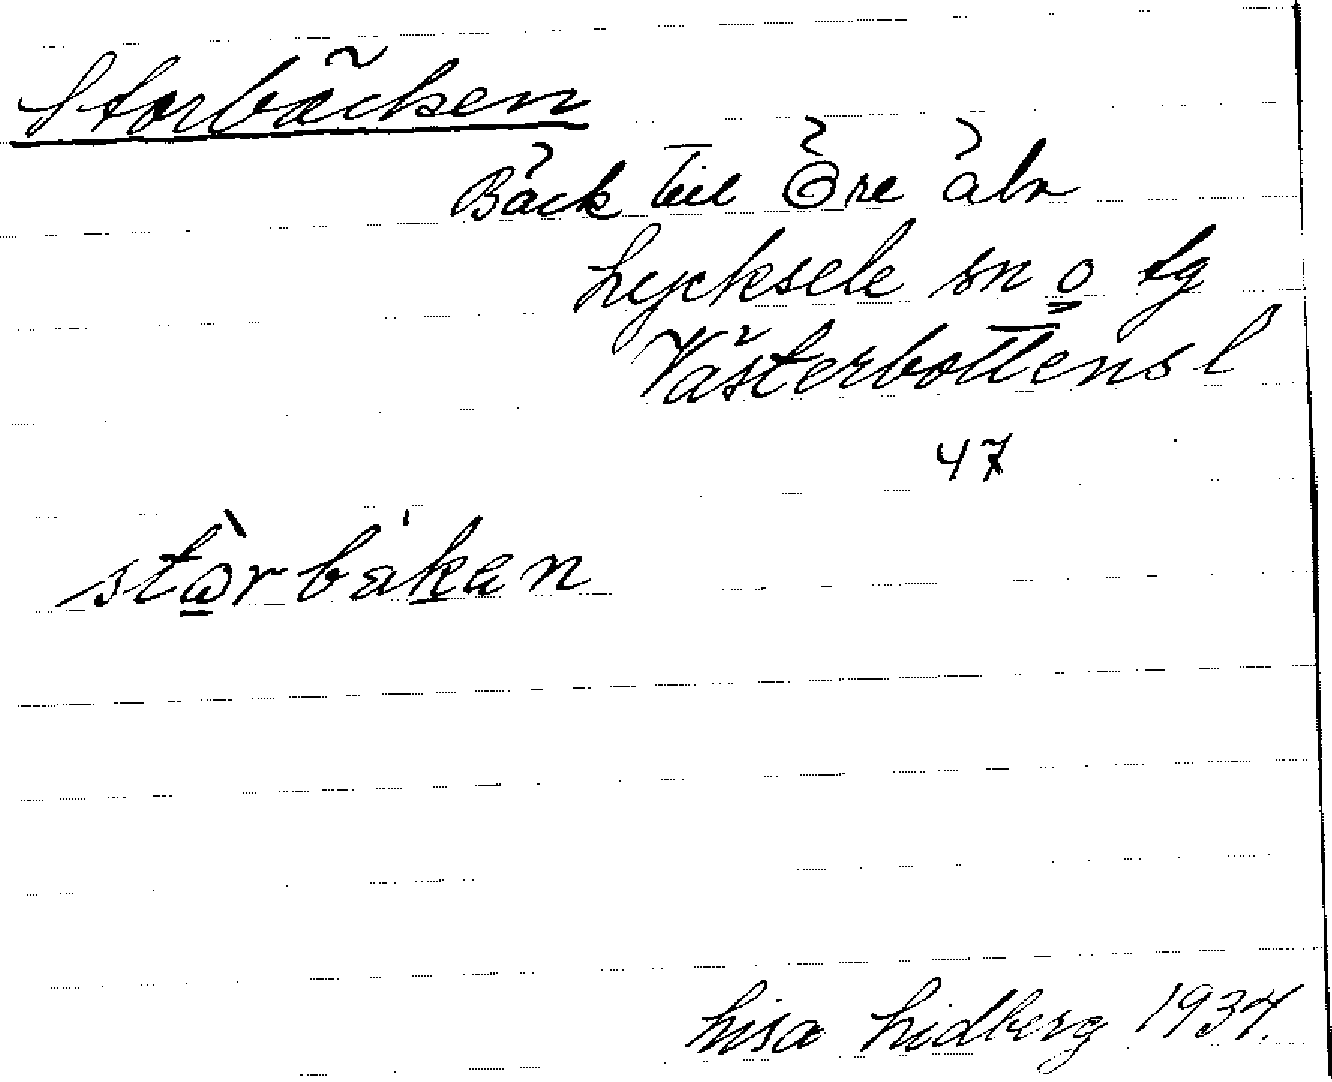 Storbäcken
Bäck till Öre älv
Lycksele sn o tg
Västerbottens l
47
stòrbäken
Lisa Lidberg 1934.